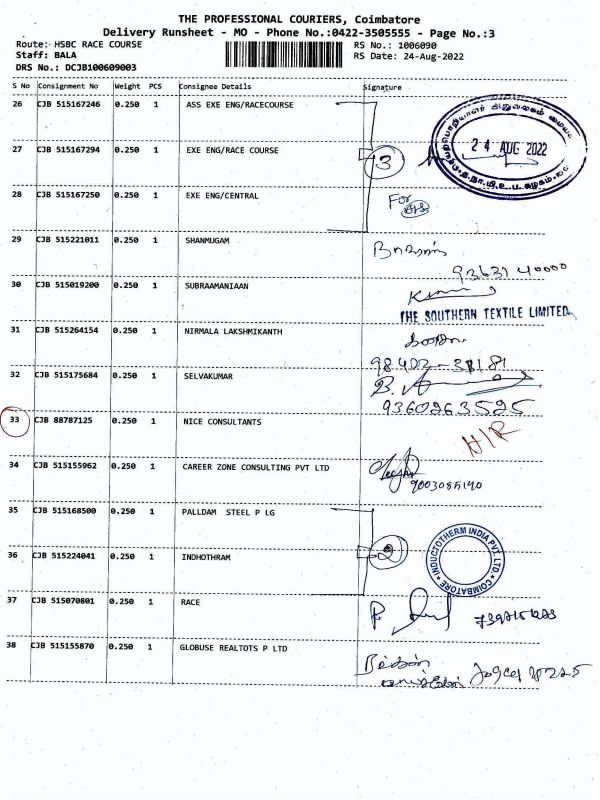 THE PROFESSIONAL COURIERS, Coimbatore
Delivery Runsheet - MO - Phone No.:0422-3505555 - Page No.:3
Route: HSBC RACE COURSE RS No.: 1006090
Staff: BALA RS Date: 24-Aug-2022
DRS No.: DCJB100609003
S No Consignment No Weight PCS Consignee Details Signature
26 CJB 515167246 0.250 1 ASS EXE ENG/RACECOURSE
24 AUG 2022
27 CJB 515167294 0.250 1 EXE ENG/RACE COURSE 3
28 CJB 515167250 0.250 1 EXE ENG/CENTRAL For
29 CJB 515221011 0.250 1 SHANMUGAM
30 CJB 515019200 0.250 1 SUBRAAMANIAAN
THE SOUTHERN TEXTILE LIMITED.
31 CJB 515264154 0.250 1 NIRMALA LAKSHMIKANTH
32 CJB 515175684 0.250 1 SELVAKUMAR
9360263525
33 CJB 88787125 0.250 1 NICE CONSULTANTS H/R
34 CJB 515155962 0.250 1 CAREER ZONE CONSULTING PVT LTD
35 CJB 515168500 0.250 1 PALLDAM STEEL P LG
36 CJB 515224041 0.250 1 INDHOTHRAM 2
INDUCTOTHERM INDIA PVT. LTD. * COIMBATORE *
37 CJB 515070801 0.250 1 RACE
38 CJB 515155870 0.250 1 GLOBUSE REALTOTS P LTD